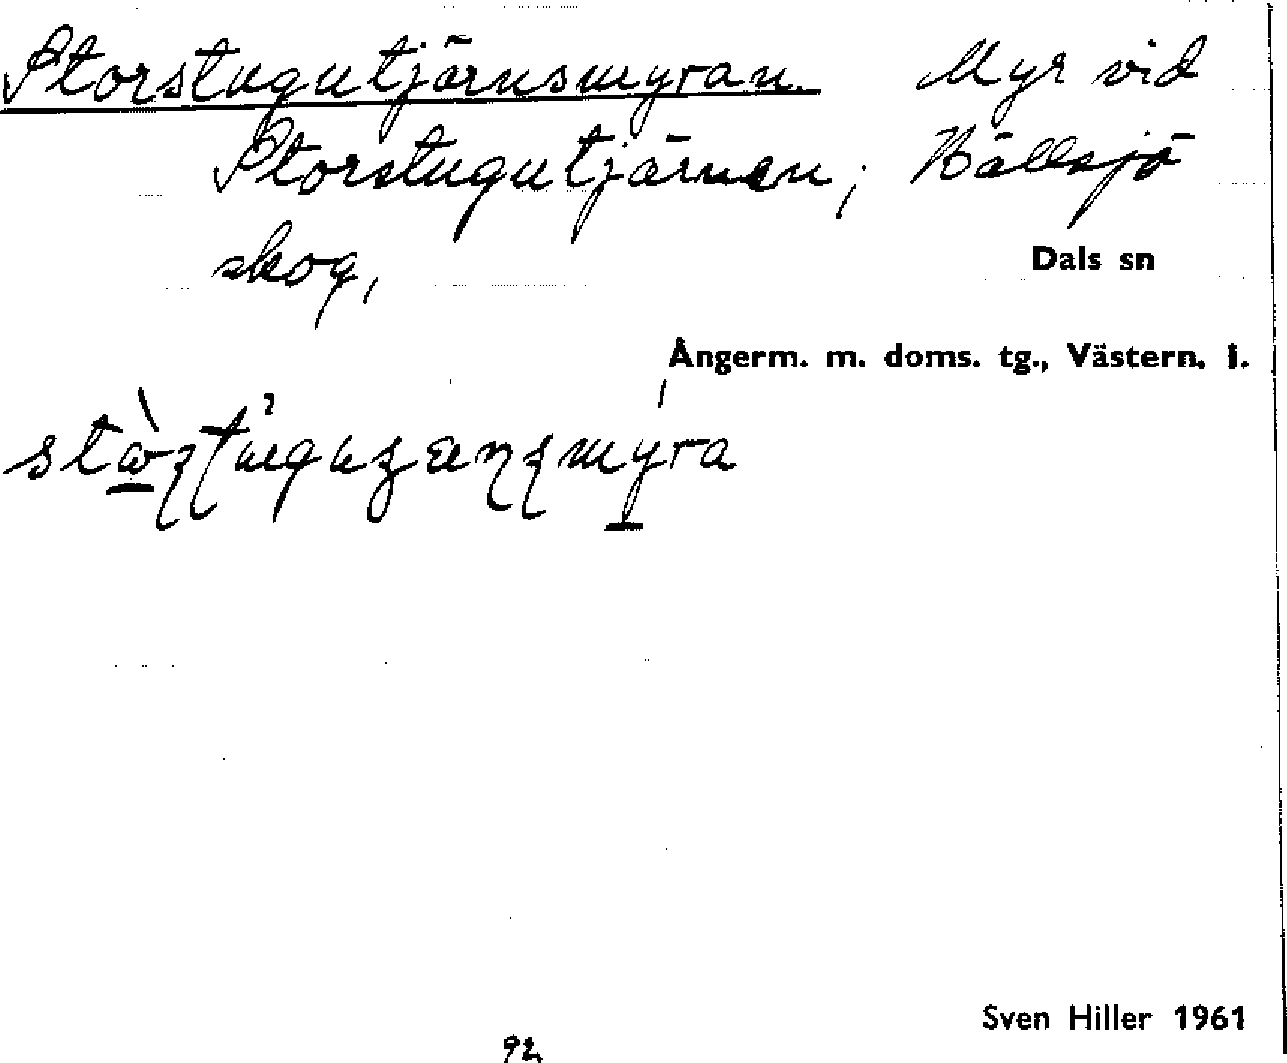 Storstugutjärnsmyran Myr vid
Storstugutjärnen, Hällsjö
skog,
Dals sn
Ångerm. m. doms. tg., Västern. l.
Sven Hiller 1961
92